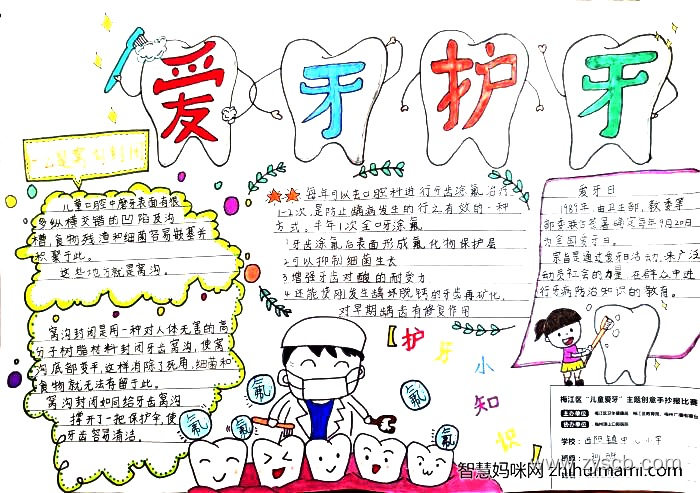 爱牙护牙
儿童口腔中磨牙表面有很
多纵横交错的凹陷及沟
槽,食物残渣和细菌容易嵌塞并
积聚于此。
这些地方就是窝沟。
窝沟封闭是用一种对人体无害的高
分子树脂材料封闭牙齿窝沟,使窝
沟底部变平,这样消除了死角,细菌和
食物就无法存留于此。
窝沟封闭如同给牙齿窝沟
撑开了一把保护伞,使
牙齿容易清洁。
每年可以去口腔科进行牙齿涂氟治疗
1-2次,是防止龋病发生的行之有效的一种
方式。半年1次全口涂氟
1牙齿涂氟后表面形成氟化物保护层
2可以抑制细菌生长
3增强牙齿对酸的耐受力
4还能使刚发生龋坏脱钙的牙齿再矿化,
对早期龋齿有修复作用
爱牙日
1989年,由卫生部、教委等
部委联合签署确定每年9月20日
为全国爱牙日。
宗旨是通过爱牙日活动,来广泛
动员社会的力量,在群众中进
行牙病防治知识的教育。
护牙小知识!
氟
氟
氟
氟
氟
梅江区“儿童爱牙”主题创意手抄报比赛
主办单位
承办单位
学校:
智慧妈咪网 zhihuimami.com
www.zyscb.com